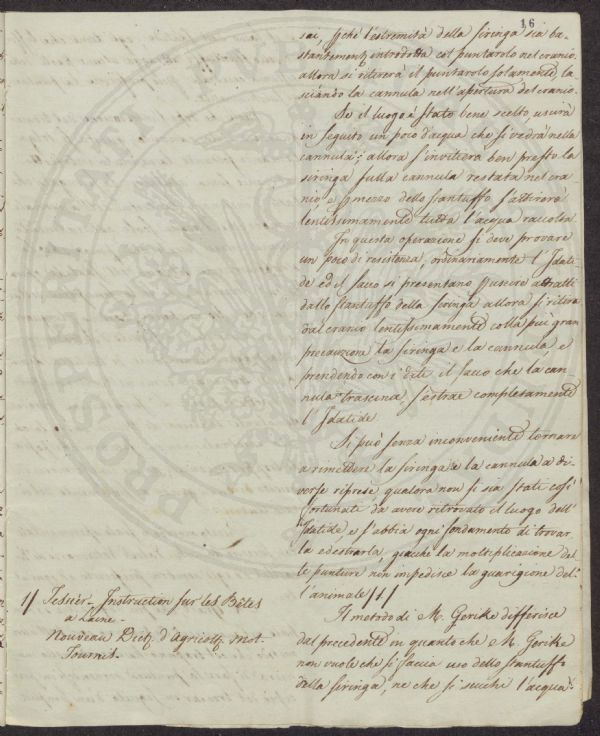 16
sai, pchè l'estremità della siringa sia ba-
stantement introdotta col puntarolo nel cranio.
allora si ritirerà il puntarolo solamente, la-
sciando la cannula nell'apertura del cranio.
Se il luogo è stato bene scelto, uscirà
in seguito un poco d'acqua che si vedrà nella
cannula; allora s'inviterà ben presto la
siringa sulla cannula restata nel cra-
nio, e p mezzo dello stantuffo, s'attirerà
lentissimamente tutta l'acqua raccolta.
In questa operazione si deve provare
un poco di resistenza, ordinariamente l'Idati-
de ed il sacco si presentano p uscire attratti
dallo stantuffo della siringa allora si ritira
dal cranio lentissimamente colla più gran
precauzione la siringa e la cannula, e
prendendo con i dita il sacco che la can-
nula trascina, s'estrae completamente
l'Idatide.
Si può senza inconveniente tornare
a rimettere la siringa e la cannula a di-
verse riprese, qualora non si sia stati così
fortunati da avere ritrovato il luogo dell'
Idatide, e s'abbia ogni fondamento di trovar-
la ed estrarla, giacchè la moltiplicazione del-
le punture non impedisce la guarigione del-
l'animale
Il metodo di M. Gerike differisce
dal precedente in quanto che M. Gerike
non vuole che si faccia uso dello stantuffo
della siringa, ne che si succhi l'acqua
Tessier - Instruction sur les Bêtes
a Laine -
Nouveau Dict d'Agricolt mot
Tournis.